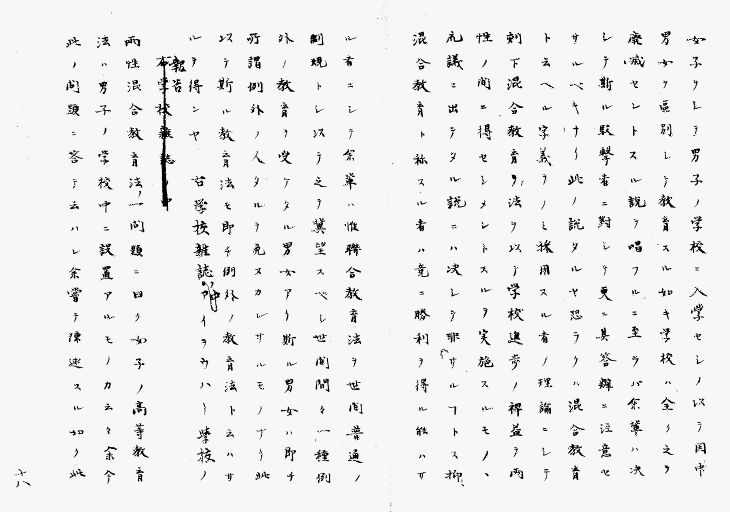 女子ヲシテ男子ノ学校ニ入学セシメ以テ国中
男女ノ区別シテ教育スル如キ学校ハ全ク之ヲ
廃滅セントスル説ヲ唱フルニ至ラバ余輩ハ決
シテ斯ル駁撃者ニ対シテ更ニ其答辯ニ注意セ
サルベキナリ此ノ説タルヤ恐ラクハ混合教育
ト云ヘル字義ヲノミ採用スル者ノ理論ニシテ
刻下混合教育ノ法ヲ以テ学校進歩ノ裨益ヲ両
性ノ間ニ得セシメントスルヲ実施スルモノヽ
冗議ニ出テタル説ニハ決シテ非サルナリトス抑
混合教育ト称スル者ハ竟ニ勝利ヲ得ル能ハサ
ル者ニシテ余輩ハ惟聯合教育法ヲ世間普通ノ
制規トシ以テ之ヲ冀望スベシ世間間々一種例
外ノ教育ヲ受ケタル男女アリ斯ル男女ハ即チ
所謂例外ノ人タルヲ免スカレサルモノナリ此
以テ斯ル教育法モ即チ例外ノ教育法ト云ハサ
ルヲ得ンヤ 右学校雑誌
報告
両性混合教育法ノ一問題ニ曰ク女子ノ高等教育
法ハ男子ノ学校中ニ設置アルモノカ云々余今
此ノ問題ニ答テ云ハン余嘗テ陳述スル如ク此
十八